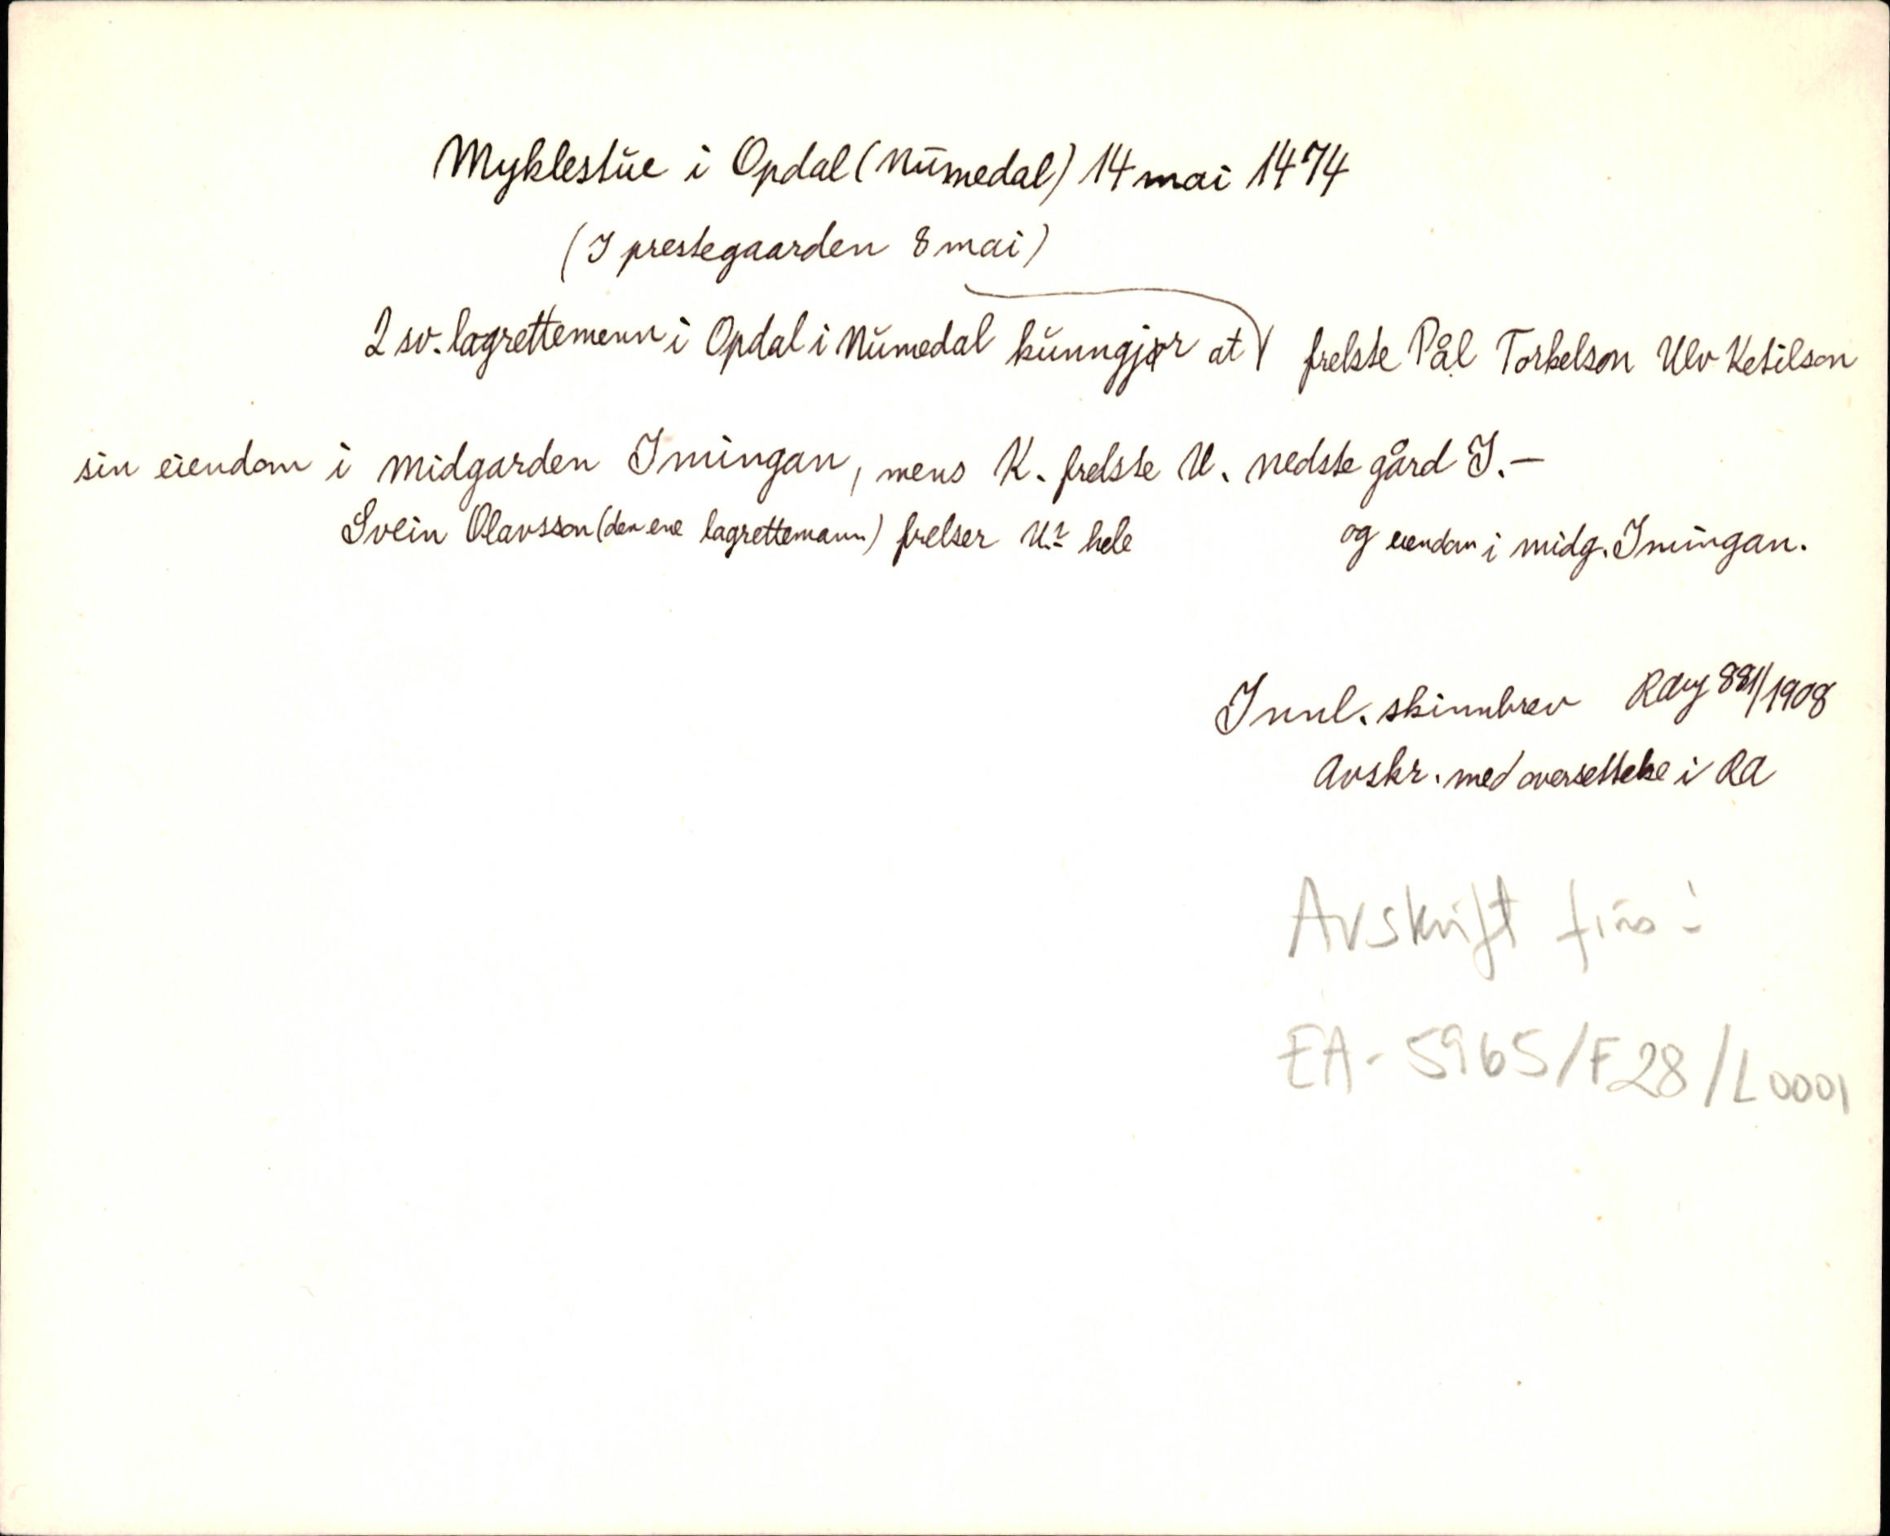 Myklestue i Opdal (Numedal) 14 mai 1474
(I prestegaarden 8 mai)
2 sv. lagrettemenn i Opdal i Numedal kunngjør at frelste Pål Torkelson Ulv Ketilson
sin eiendom i midgarden Imingan, mens K. frelste U. nedste gård I. —
Svein Olavsson (den ene lagrettemann) frelser U. hele og eiendom i midg. Imingan.
Innl. skinnbrev 881/1908
Avskr. med oversettelse i RA
Avskrift fins i
EA-5965/F28/L0001